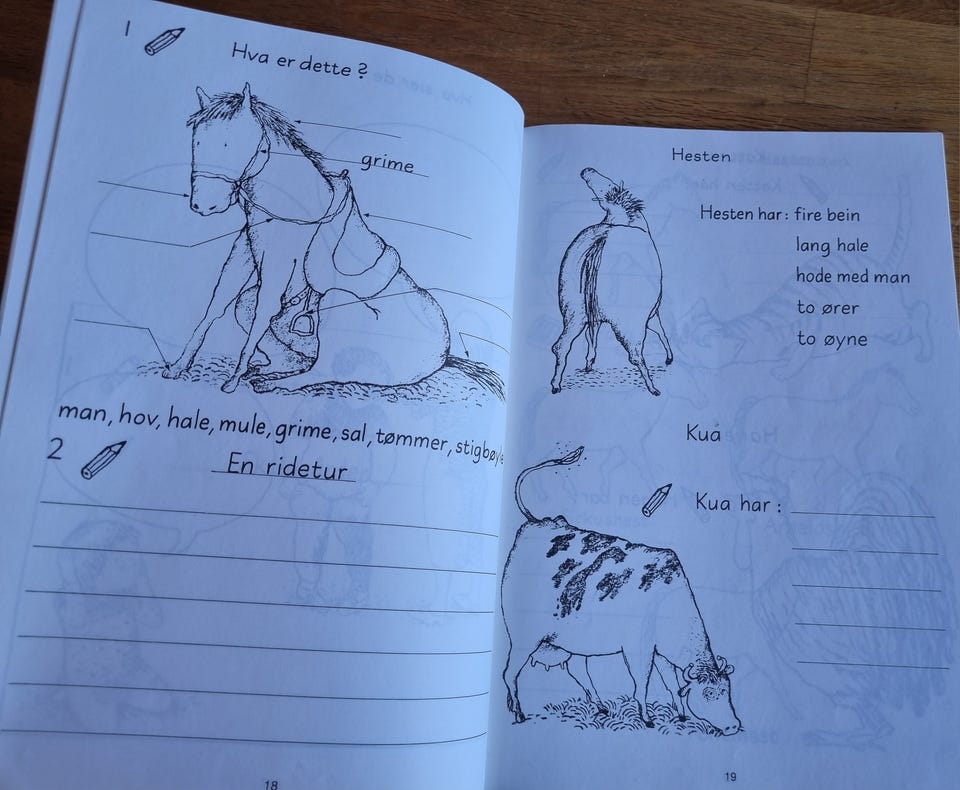 1
Hva er dette ?
grime
man, hov, hale, mule, grime, sal, tømmer, stigbøyle
2
En ridetur
18
Hesten
Hesten har : fire bein
lang hale
hode med man
to ører
to øyne
Kua
Kua har :
19